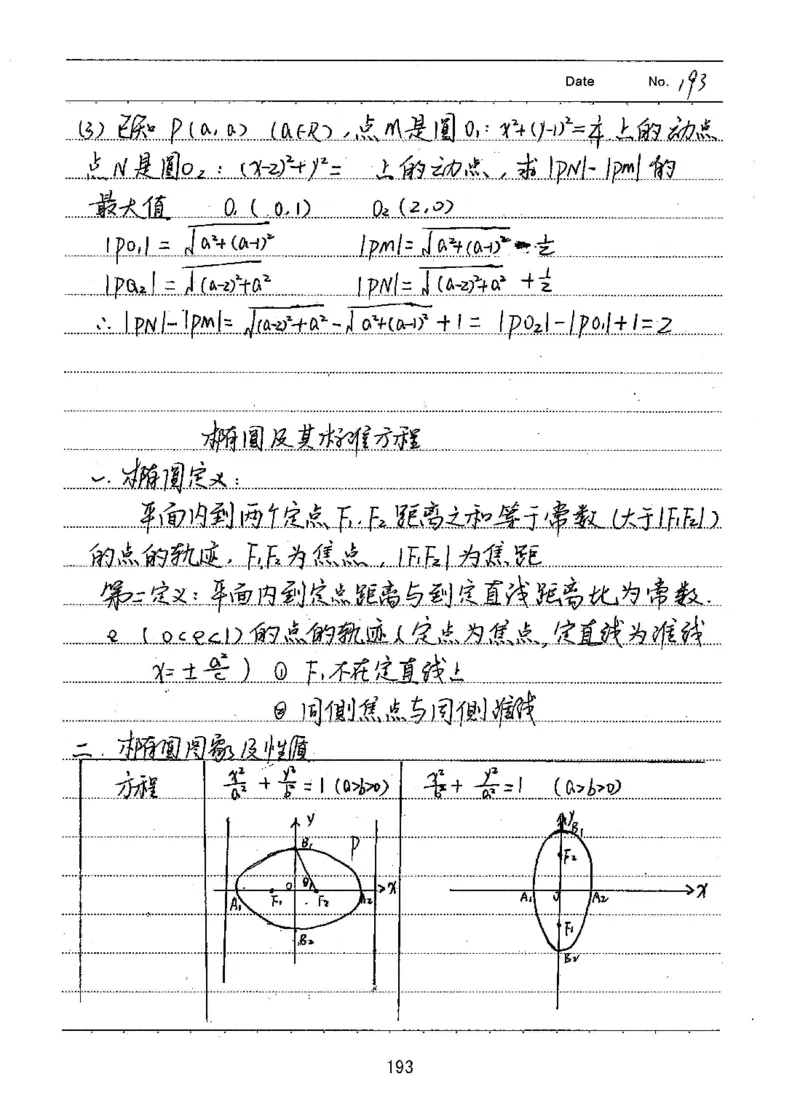 Date No. 193
(3) 已知 P(a,a) (a∈R),点M是圆O₁: x²+(y-1)²=¼ 上的动点
点N是圆O₂: (x-2)²+y²= 上的动点,求|PN|-|PM|的
最大值 O₁(0,1) O₂(2,0)
|PO₁|=√(a²+(a-1)²) |PM|=√(a²+(a-1)²) - ½
|PO₂|=√((a-2)²+a²) |PN|=√((a-2)²+a²) + ½
∴|PN|-|PM|=√((a-2)²+a²)-√(a²+(a-1)²)+1=|PO₂|-|PO₁|+1=2
椭圆及其标准方程
一.椭圆定义:
平面内到两个定点F₁.F₂距离之和等于常数(大于|F₁F₂|)
的点的轨迹.F₁F₂为焦点,|F₁F₂|为焦距
第二定义:平面内到定点距离与到定直线距离比为常数.
e (0<e<1)的点的轨迹(定点为焦点,定直线为准线
x=±a²/c ) ① F₁不在定直线上
② 同侧焦点与同侧准线
二.椭圆图象及性质
方程 x²/a²+y²/b²=1 (a>b>0) x²/b²+y²/a²=1 (a>b>0)
y B₁ P
A₁ F₁ O F₂ A₂ x
B₂
y B₁
F₂
A₁ O A₂ x
F₁
B₂
193